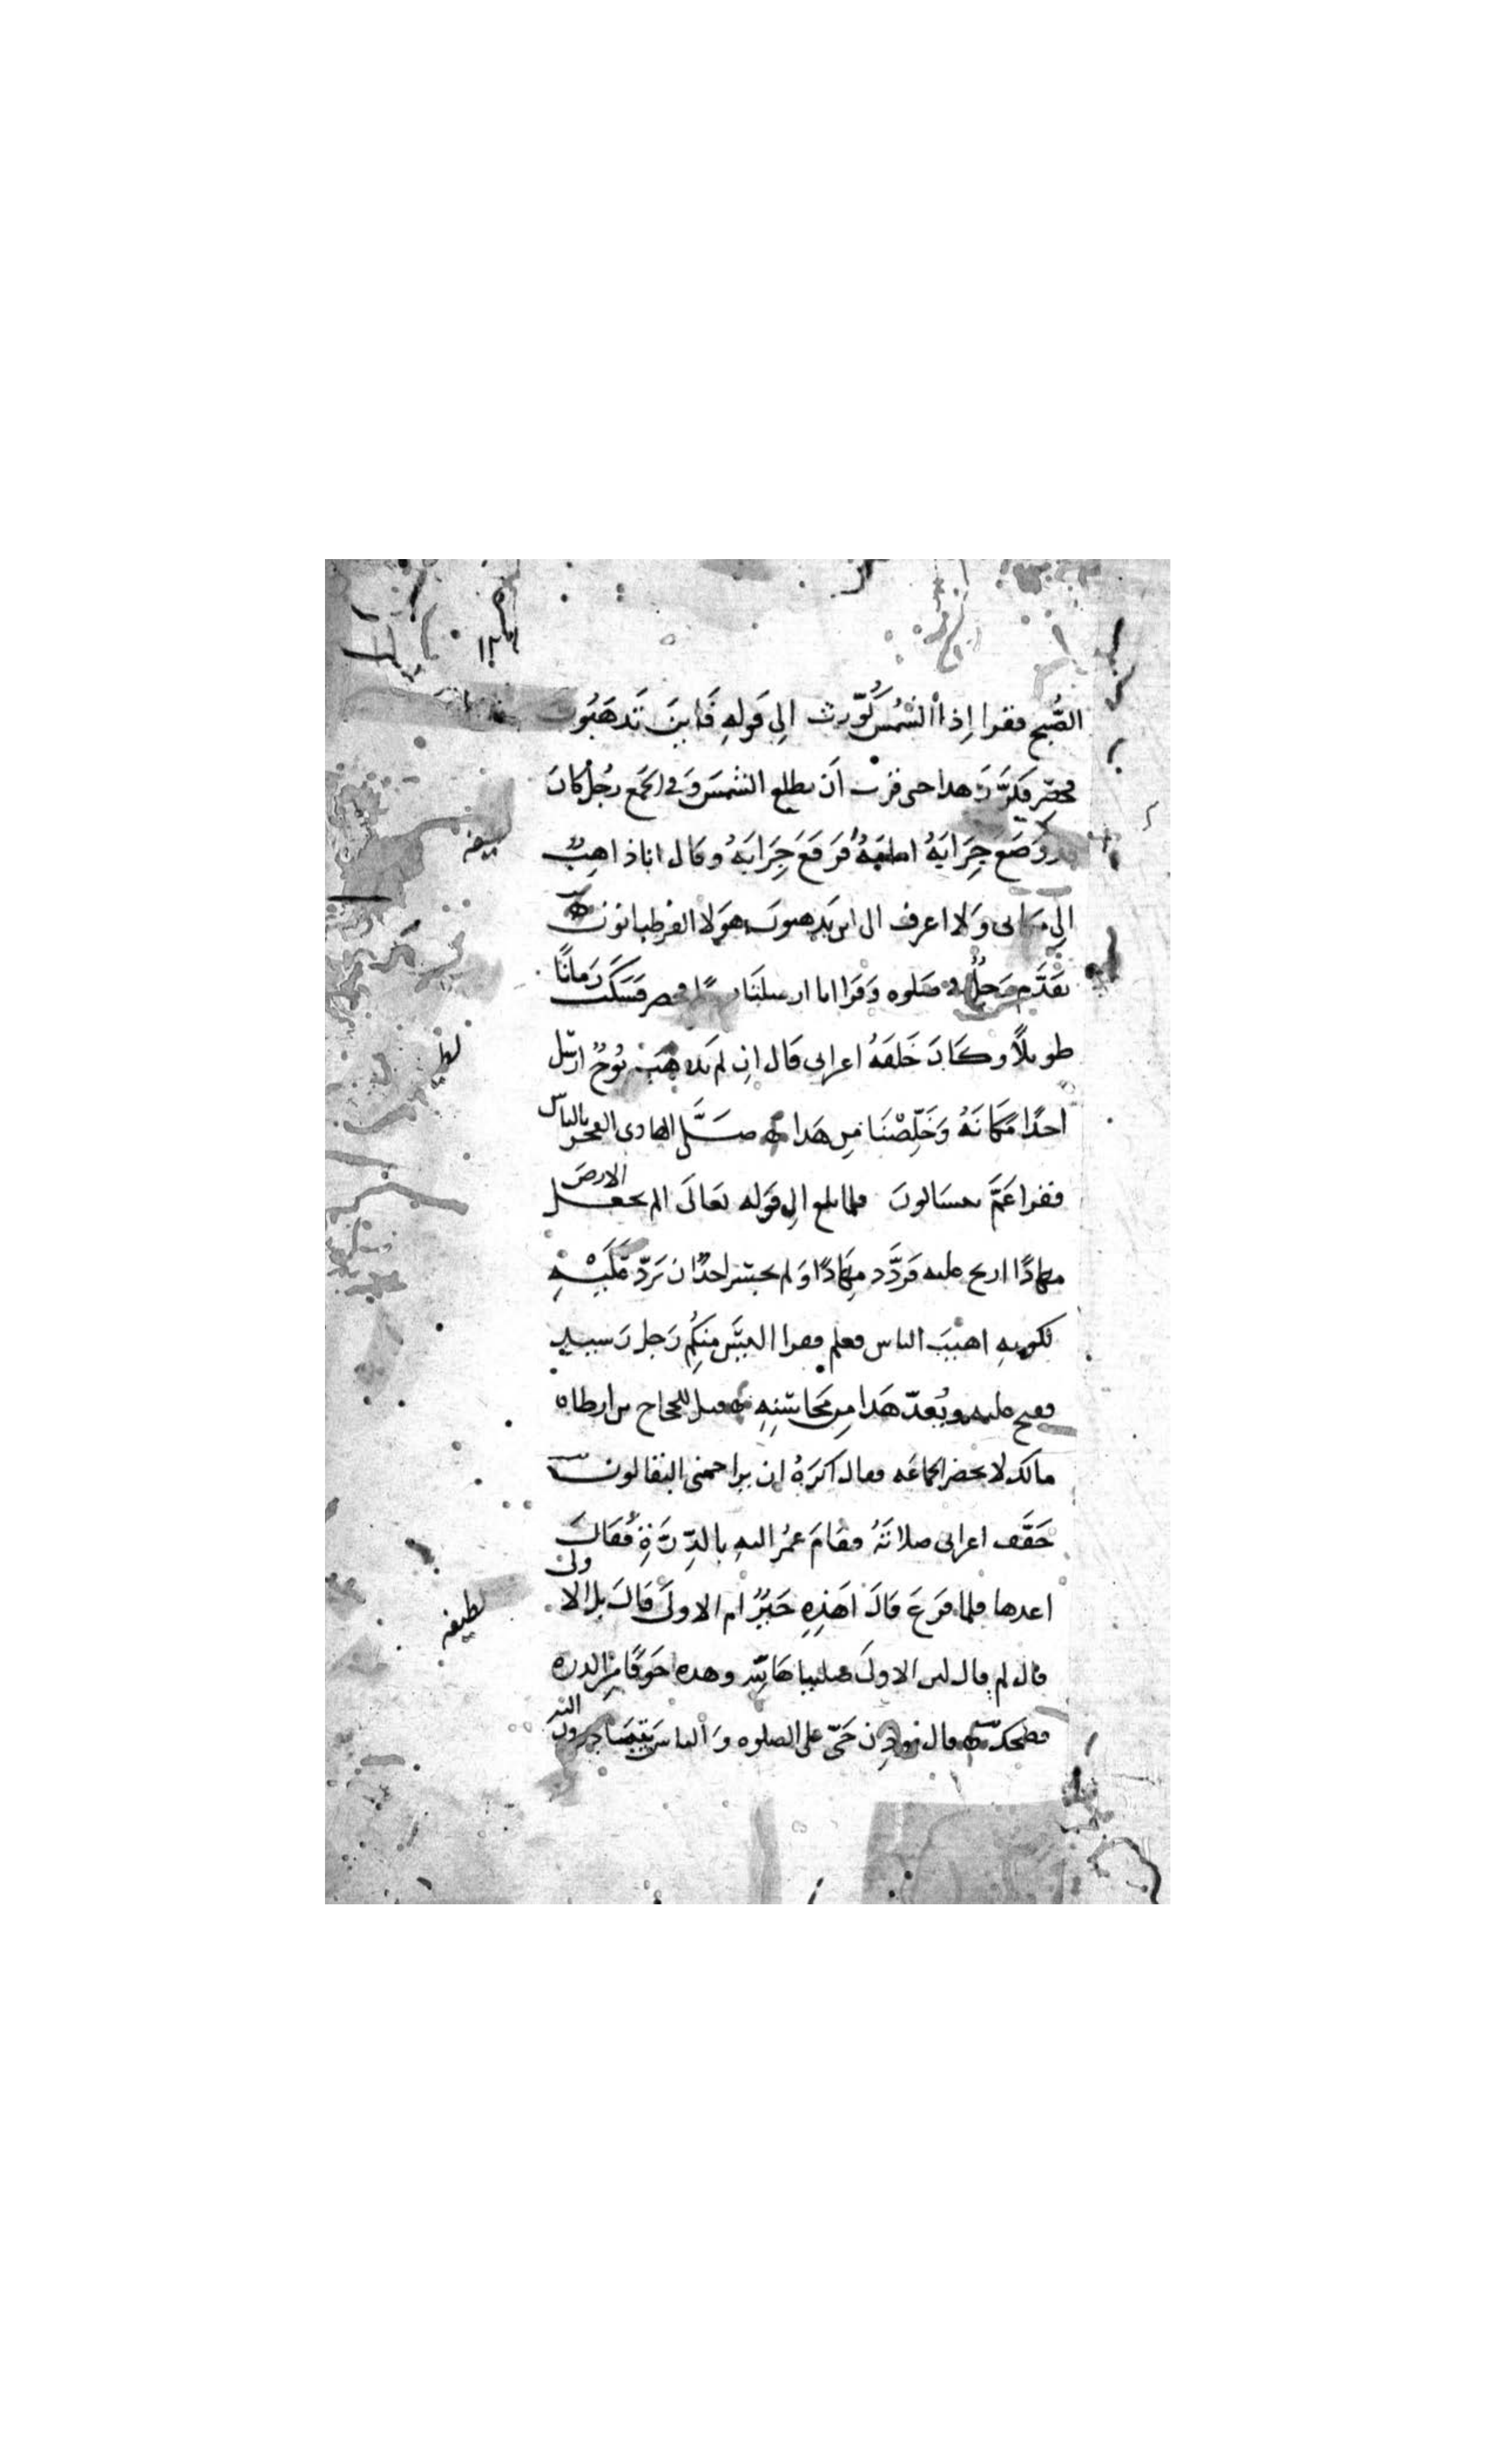 الصُّبح فقرا إِذا الشَّمسُ كُوّرت الِى قَولهِ فَاينَ تَذهَبُون
فحصر فكرَّرَ هدا حى قربت اَن يطلع الشمسَ وَفى الجمع رَجُل كَانَ
وَضَعَ جِرَابَهُ امامَهُ فرَفَعَ جِرَابَهُ وقال انا ذاهِبٌ
الِى ولا اعرف الى اين يذهبون هَولا القرطبانون
تقدَّم رَجُلٌ فى صَلوه وَقرا انا ارسلنَا فحصر فسَكت زَمانًا
طويلاً وكَانَ خَلفَهُ اعرابى قَال ان لم يذهَب نُوحٌ ارسل
احدًا مكانَهُ وَخَلِّصْنَا مِن هَدا صَلَّى الهادى الفجر بالناس
فقرا عَمَّ يتسَالونَ فلما بلغ الى قَوله تعَالَى الم نجعل الارض
مهادًا ارتج عليه فَردَّد مِهَادًا وَلم يجسر احدٌ ان يَردّ عَلَيْهِ
لكونهِ اهيبَ الناس فعلم فقرا اليسَ مِنكُم رَجل رَشيد
ففتح عليه ويُعدّ هَدا مِن مَحَاسنِهِ قيل للحجاج بن ارطاه
مالك لا تحضر الجماعَه فقال اكرَهُ ان يزاحمنى البقالون
خَفَّف اعرابى صلاتَهُ فقَامَ عمرُ اليهِ بالدِّرَّةِ فقَالَ
اعدها فلما فرَغَ قالَ اَهَذِهِ خَيرٌ ام الاولَى قَالَ بل الاولى
قال لم قال لان الاولَى صليتها لله وهده خَوفًا من الدره
فضحك قال مؤذن حَىّ على الصلوه وَالناس يتبَادرون
لطيفه